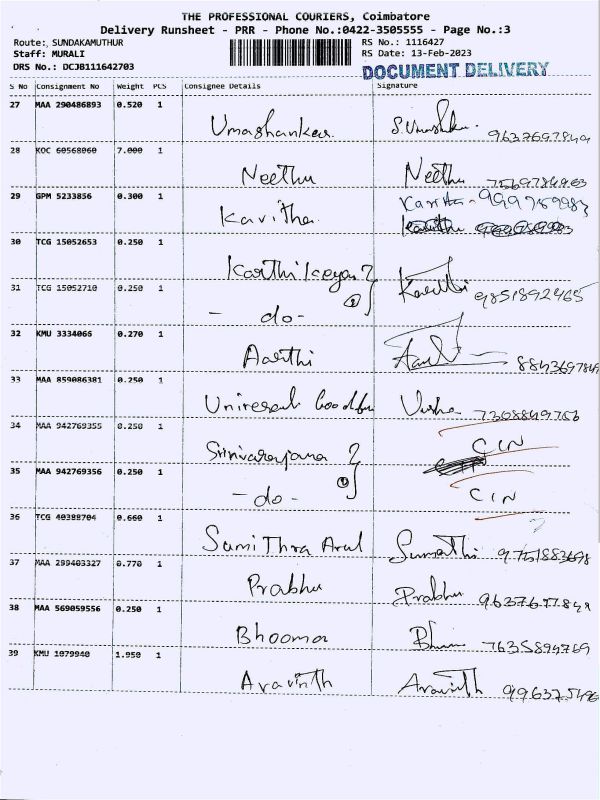 THE PROFESSIONAL COURIERS, Coimbatore
Delivery Runsheet - PRR - Phone No.:0422-3505555 - Page No.:3
Route: SUNDAKAMUTHUR RS No.: 1116427
Staff: MURALI RS Date: 13-Feb-2023
DRS No.: DCJB111642703 DOCUMENT DELIVERY
S No Consignment No Weight PCS Consignee Details Signature
27 MAA 290486893 0.520 1
Umashankar
28 KOC 60568060 7.000 1
Neethu Neethu
29 GPM 5233856 0.300 1
Kavitha
30 TCG 15052653 0.250 1
Karthikeyan
31 TCG 15052710 0.250 1
- do - 9851892465
32 KMU 3334066 0.270 1
Aarthi
33 MAA 859086381 0.250 1
Usha
34 MAA 942769355 0.250 1
CIN
35 MAA 942769356 0.250 1
- do - CIN
36 TCG 40388704 0.660 1
Sumithra Arul Sumathi
37 MAA 299403327 0.770 1
Prabhu Prabhu
38 MAA 569059556 0.250 1
Bhooma 7635894769
39 KMU 1079940 1.950 1
Aravinth Aravinth